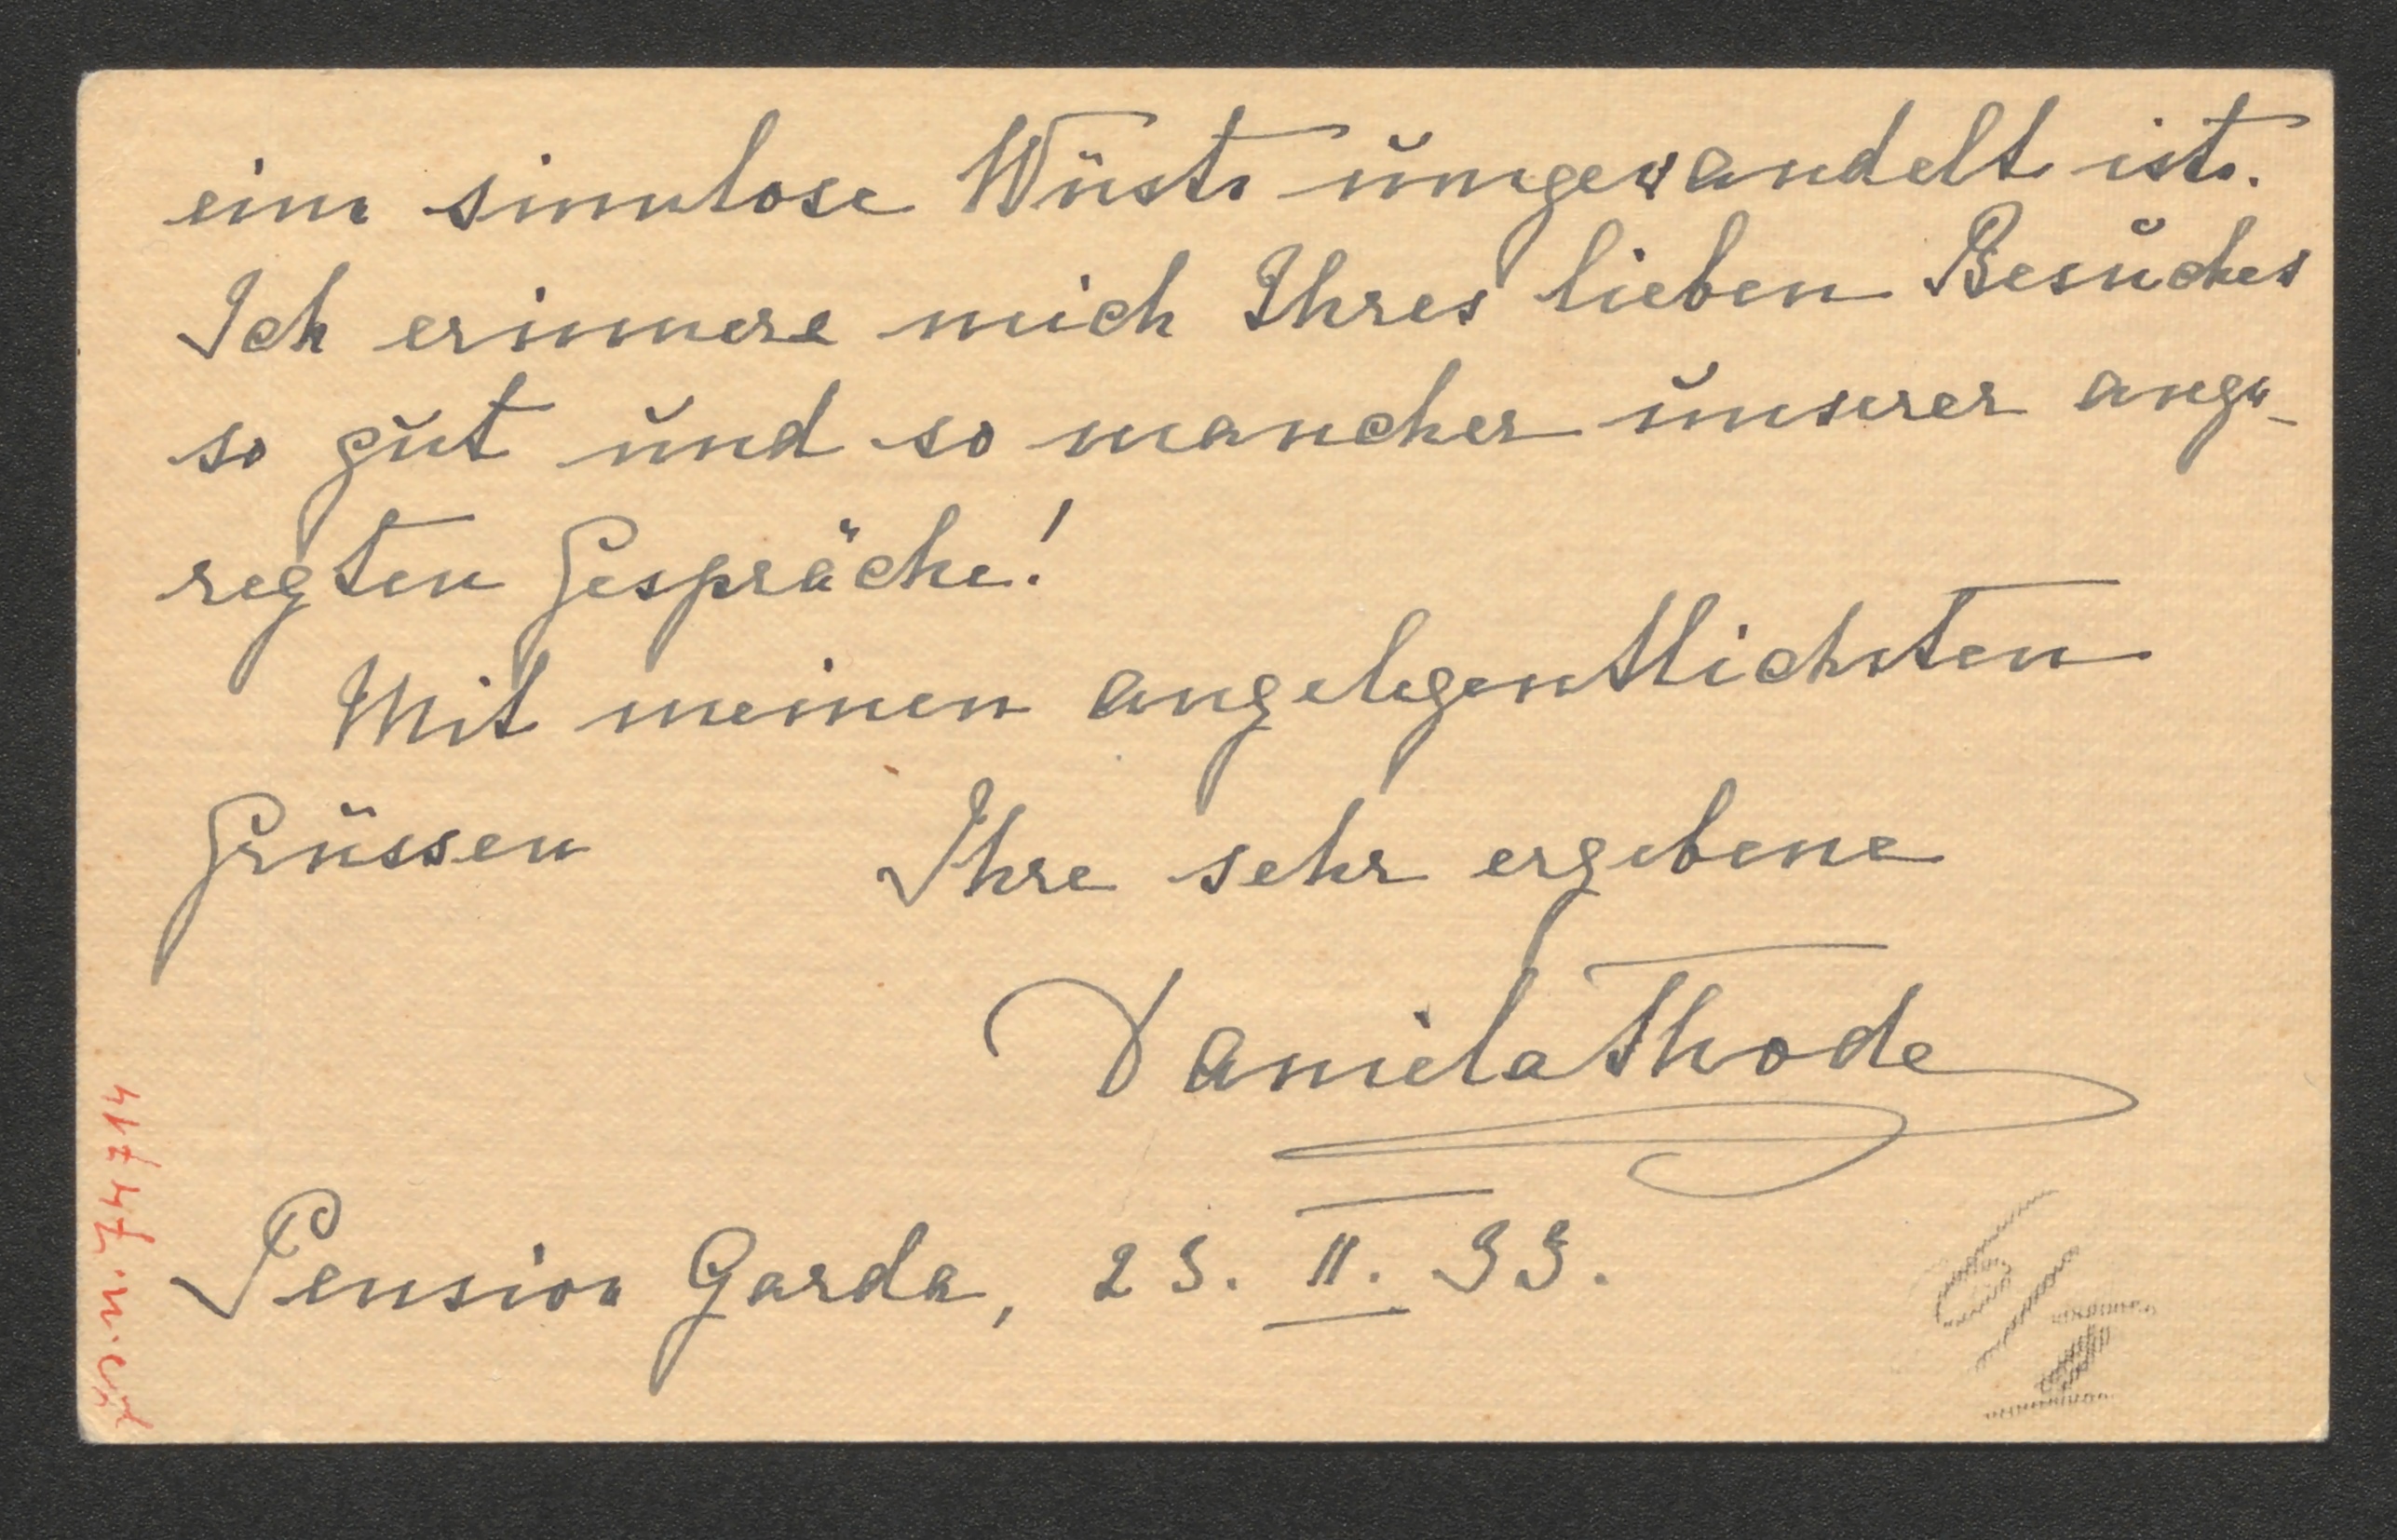 eine sinnlose Wüste umgewandelt ist.
Ich erinnere mich Ihres lieben Besuches
so gut und so mancher unserer ange-
regten Gespräche!
Mit meinen angelegentlichsten
Grüssen Ihre sehr ergebene
Daniela Thode
Pension Garda, 23. II. 33.
6/I